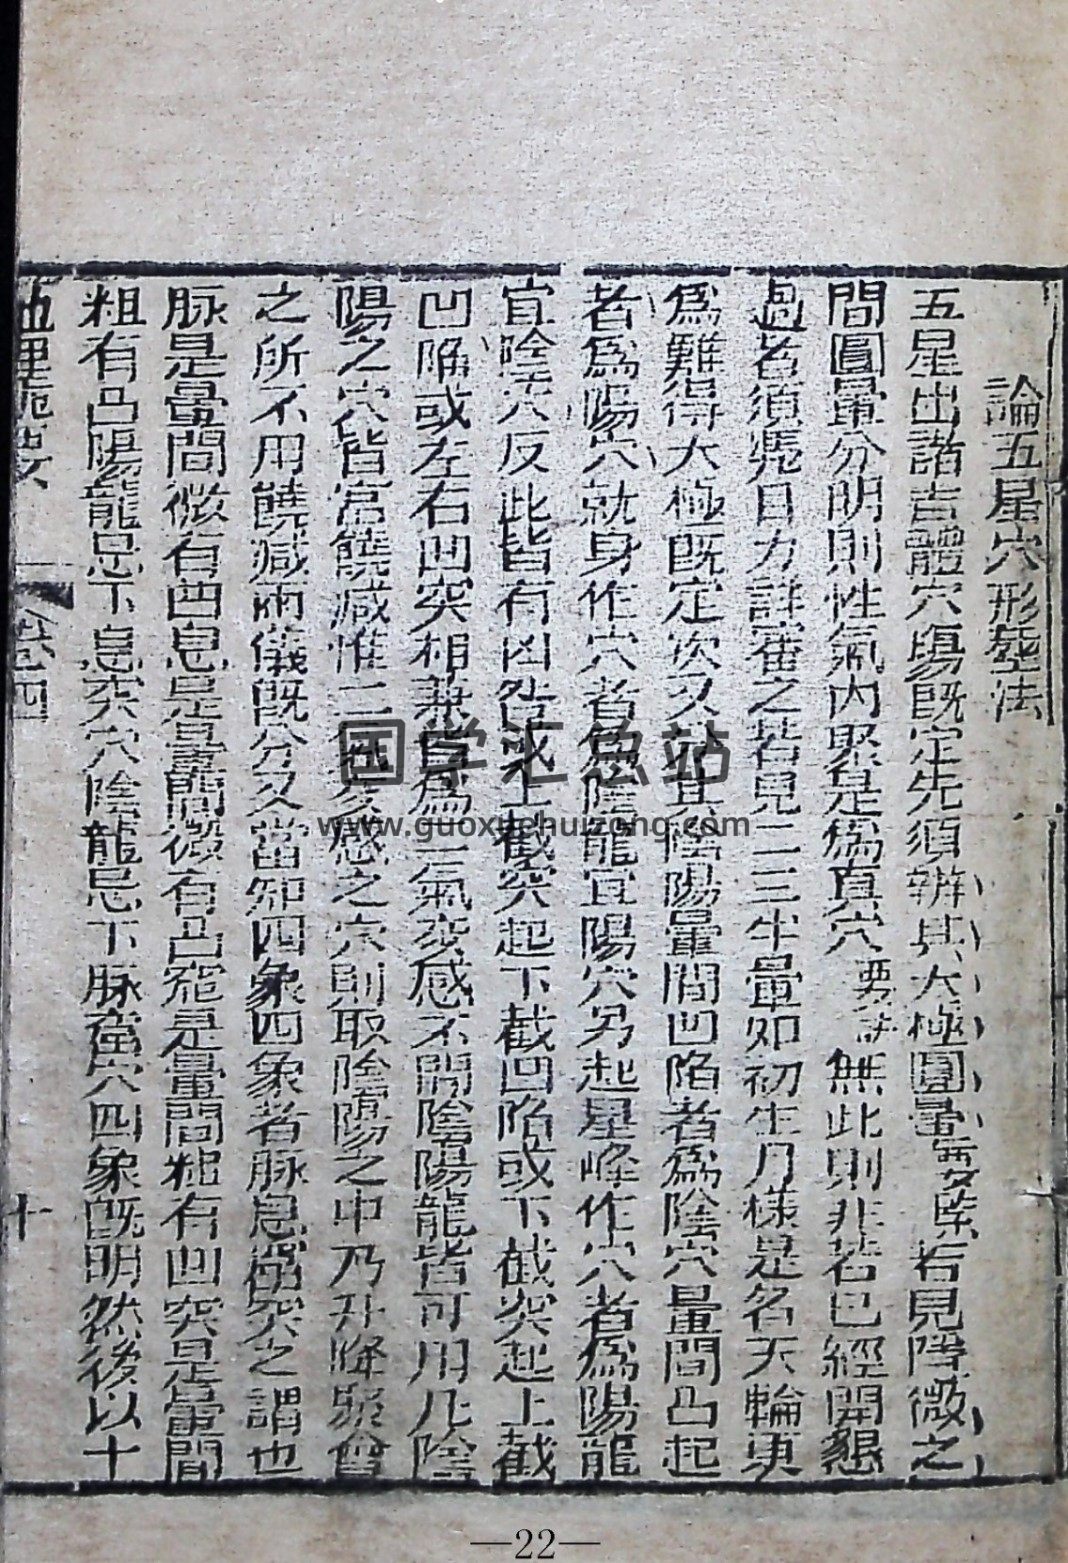 論五星穴形塟法
五星出諸吉體穴塲既定先須辨其大極圓暈要𦂳若見隱微之
間圓暈分明則性氣內聚是爲真穴要訣無此則非若已經開懇
過者須凴目力詳審之若見二三半暈如初生月樣是名天輪更
爲難得大極既定次又分其陰陽暈間凹陷者爲陰穴暈間凸起
者爲陽穴就身作穴者爲陰龍宜陽穴另起星峰作穴者爲陽龍
宜陰穴反此皆有凶咎或上截突起下截凹陷或下截突起上截
凹陷或左右凹突相兼皆爲二氣交感不問陰陽龍皆可用凡陰
陽之穴皆宮饒减惟二氣交感之穴則取陰陽之中乃升降聚會
之所不用饒减兩儀既分又當知四象四象者脉息窟突之謂也
脉是暈間微有凹息是暈間微有凸窟是暈間粗有凹突是暈間
粗有凸陽龍忌下息突穴陰龍忌下脉窟穴四象既明然後以十
卷四
十
国学汇总站
www.guoxuehuizong.com
—22—